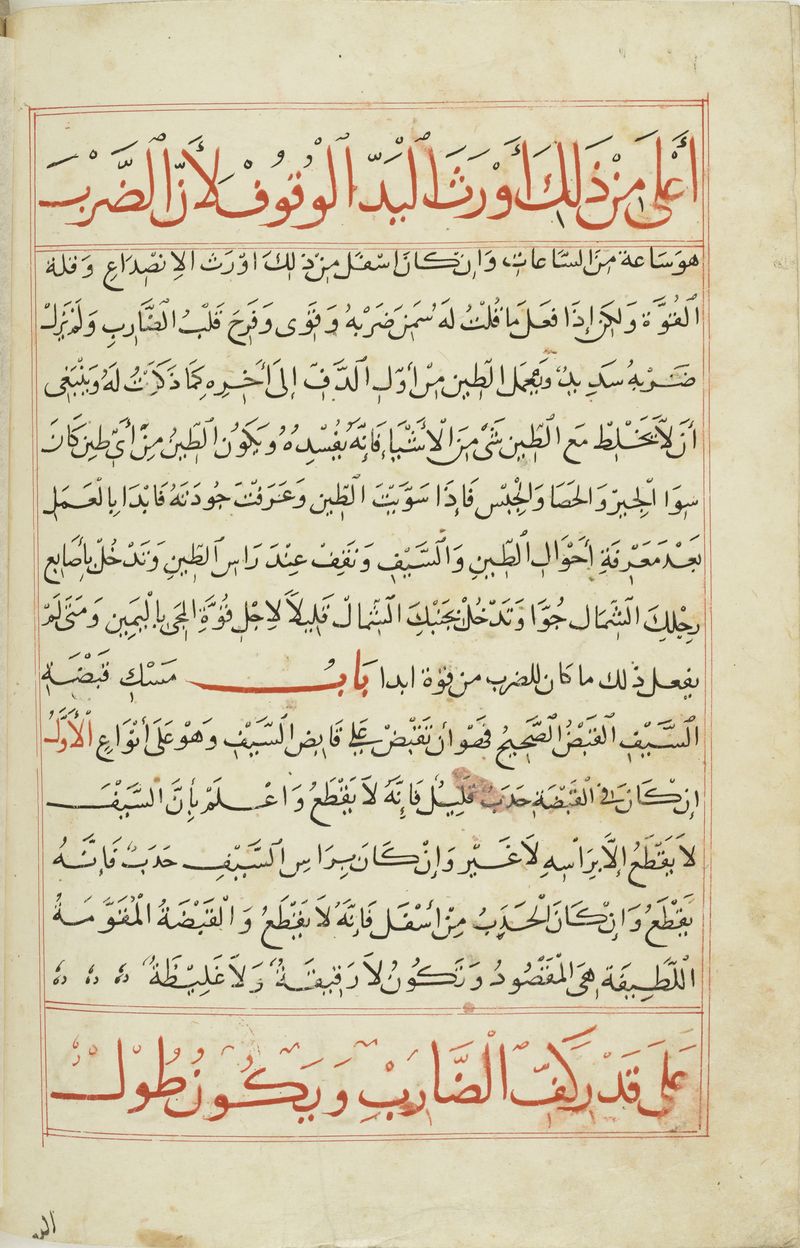 أعلى من ذلك أورث اليد الوقوف لأن الضرب
هو ساعة من الساعات وان كان اسفل من ذلك اورث الانصداع وقلة
القوة ولكن إذا فعل ما قلت له سمن ضربه وقوى وفرح قلب الضارب ولم يزل
ضربه سديد ويعمل الطين من أول الدف إلى أخره كما ذكرت له وينبغى
أن لا يخلط مع الطين شئ من الأشيا فإنه يفسده ويكون الطين من أي طين كان
سوا الجير والحصا والجبس فإذا سويت الطين وعرفت جودته فابدا بالعمل
بعد معرفة أحوال الطين والسيف وتقف عند راس الطين وتدخل بأصابع
رجلك الشمال جوا وتدخل بجنبك الشمال قليلا لاجل قوة المجى باليمين ومتى لم
يفعل ذلك ما كان للضرب من قوة ابدا باب مسك قبضة
السيف القبض الصحيح فهو أن تقبض على قايض السيف وهو على أنواع الأول
إن كان في القبضة حدب قليل فإنه لا يقطع واعلم بأن السيف
لا يقطع إلا براسه لا غير وإن كان براس السيف حدب فإنه
يقطع وإن كان الحدب من أسفل فإنه لا يقطع والقبضة المقومة
اللطيفة هي المقصود وتكون لا رقيقة ولا غليظة
على قدر كف الضارب ويكون طول